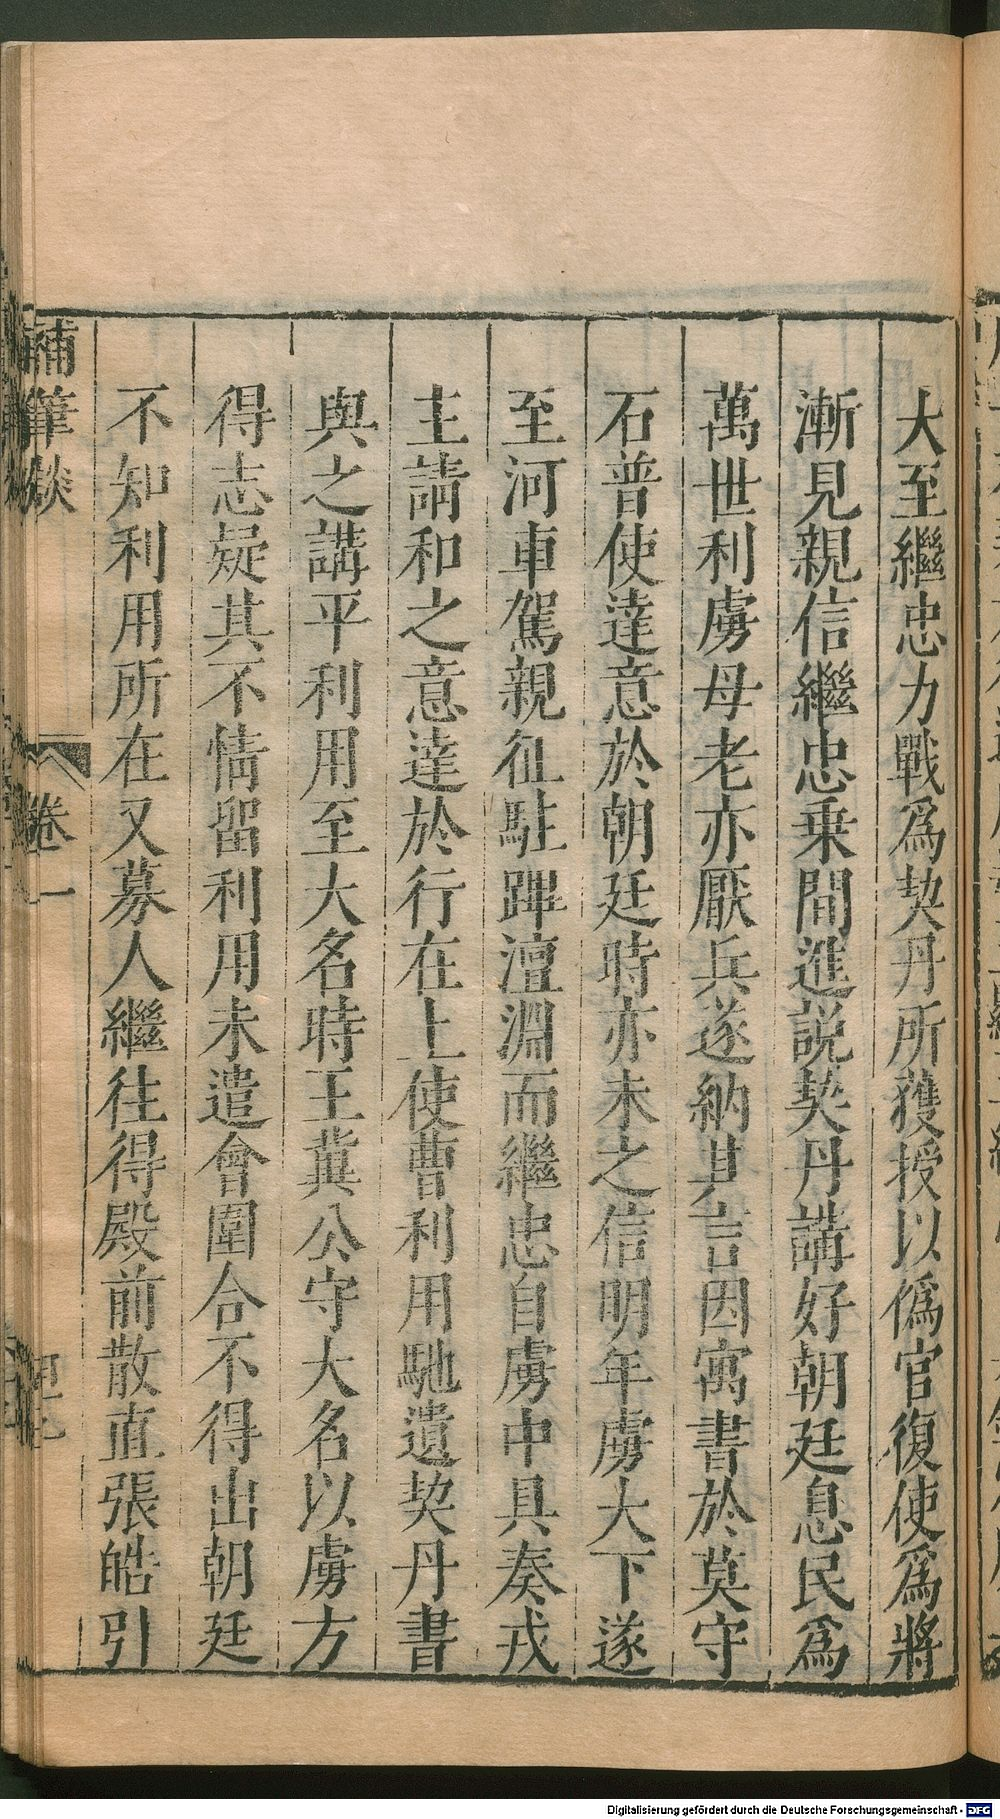 大至繼忠力戰爲契丹所獲授以僞官復使爲將
漸見親信繼忠乗間進説契丹講好朝廷息民爲
萬世利虜母老亦厭兵遂納其言因寓書於莫守
石普使達意於朝廷時亦未之信明年虜大下遂
至河車駕親征駐蹕澶淵而繼忠自虜中具奏戎
主請和之意達於行在上使曹利用馳遺契丹書
與之講平利用至大名時王冀公守大名以虜方
得志疑其不情留利用未遣會圍合不得出朝廷
不知利用所在又募人繼往得殿前散直張皓引
補筆燄 卷一
Digitalisierung gefördert durch die Deutsche Forschungsgemeinschaft - DFG